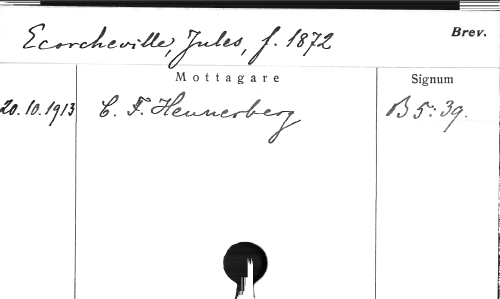 Ecorcheville, Jules, f. 1872 Brev.
Mottagare Signum
20.10.1913 C. F. Hennerberg B 5: 39.